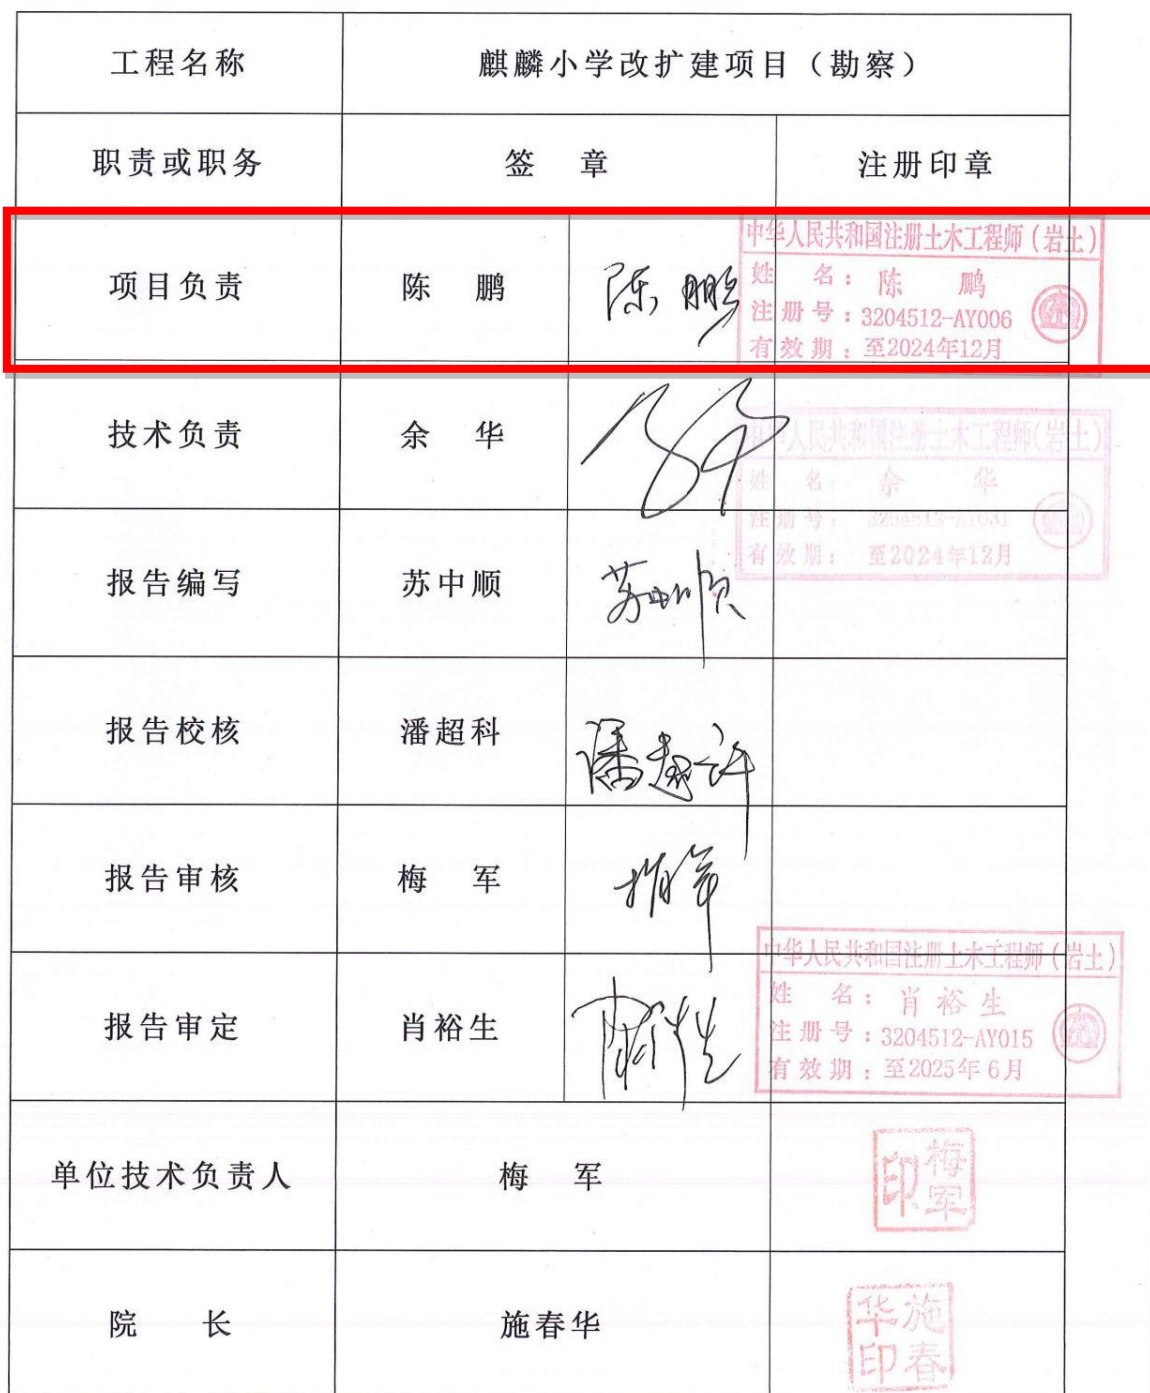 工程名称 麒麟小学改扩建项目（勘察）
职责或职务 签 章 注册印章
项目负责 陈 鹏 陈鹏
中华人民共和国注册土木工程师（岩土）
姓 名：陈 鹏
注册号：3204512-AY006
有效期：至2024年12月
技术负责 余 华
中华人民共和国注册土木工程师(岩土)
姓 名：余 华
注册号：
有效期：至2024年12月
报告编写 苏中顺 苏中顺
报告校核 潘超科
报告审核 梅 军 梅军
报告审定 肖裕生
中华人民共和国注册土木工程师（岩土）
姓 名：肖裕生
注册号：3204512-AY015
有效期：至2025年6月
单位技术负责人 梅 军 梅军印
院 长 施春华 施春华印